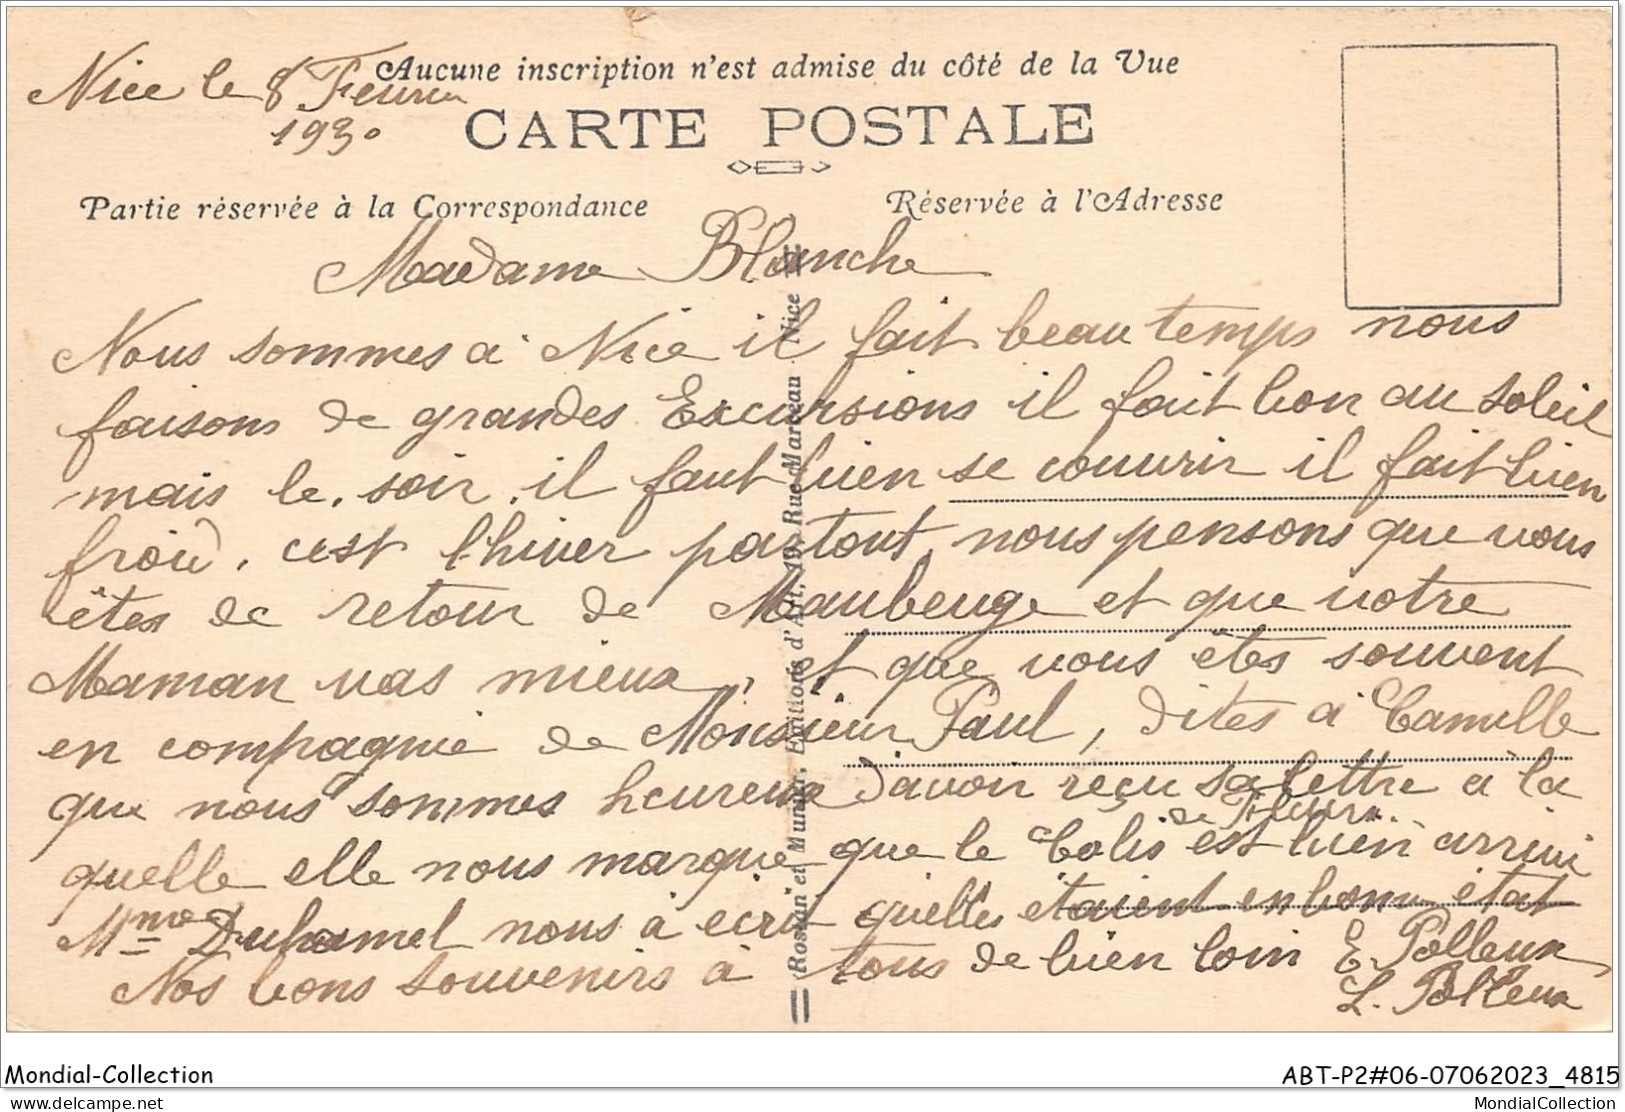 Aucune inscription n'est admise du côté de la Vue
Nice le 8 Fevrier
1930
CARTE POSTALE
Partie réservée à la Correspondance
Réservée à l'Adresse
Madame Blanche
Nous sommes a Nice il fait beau temps nous
faisons de grandes Excursions il fait bon au soleil
mais le soir il faut bien se couvrir il fait bien
froid, cest l'hiver partout, nous pensons que vous
êtes de retour de Maubeuge et que votre
Maman vas mieux, et que vous êtes souvent
en compagnie de Monsieur Paul, dites a Camille
que nous sommes heureux d'avoir reçu sa lettre a la
quelle elle nous marque que le Colis de Fleurs est bien arrivé
Mme Duhamel nous à ecrit quelles étaient en bonne état
Nos bons souvenirs à tous de bien loin E. Polleux
L. Polleux
Rostan et Munier, Editions d'Art, 19, Rue Marceau - Nice
Mondial-Collection
ABT-P2#06-07062023_4815
delcampe.net
MondialCollection